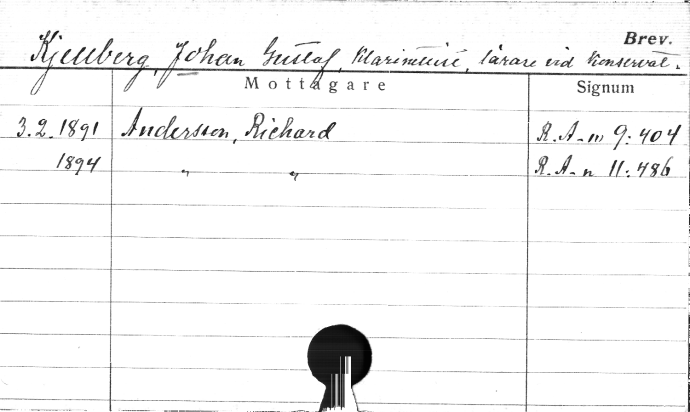 Brev.
Kjellberg, Johan Gustaf, klarinettist, lärare vid Konservat.
Mottagare Signum
3.2.1891 Andersson, Richard R.A-n 9:404
1894 " " R.A-n 11:486